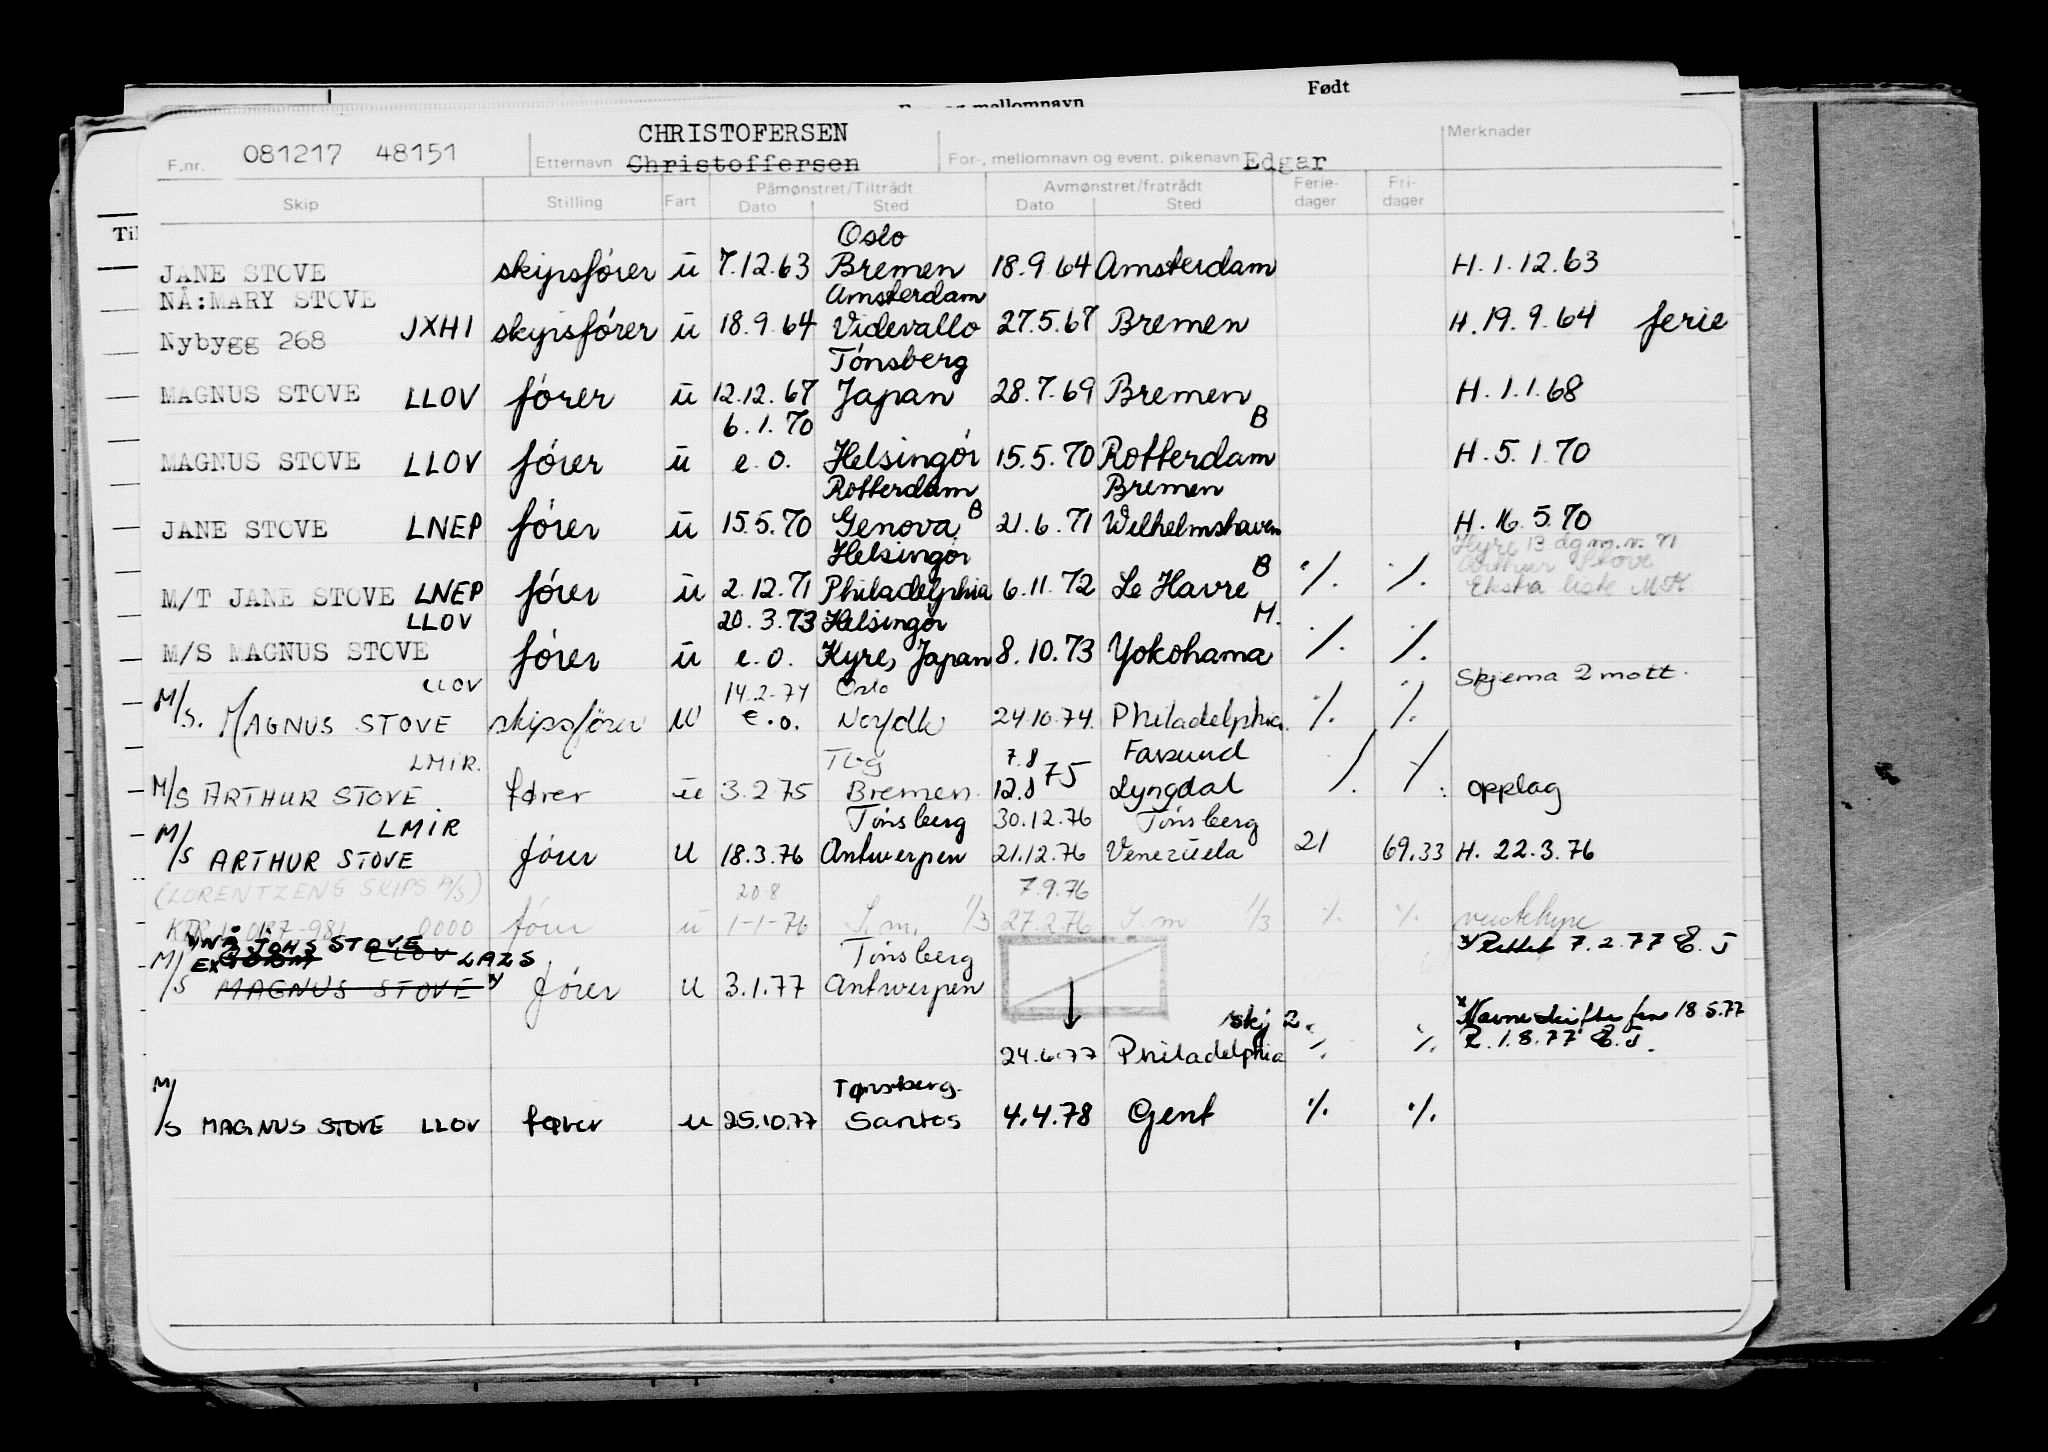 Født
mellomnavn
F.nr. 081217 48151 Etternavn CHRISTOFERSEN Christoffersen For-, mellomnavn og event. pikenavn Edgar Merknader
Skip Stilling Fart Påmønstret/Tiltrådt Dato Sted Avmønstret/fratrådt Dato Sted Ferie-dager Fri-dager
Til
Oslo
JANE STOVE skipsfører u 7.12.63 Bremen 18.9.64 Amsterdam H.1.12.63
NÅ:MARY STOVE Amsterdam
Nybygg 268 JXHI skipsfører u 18.9.64 Videvallo 27.5.67 Bremen H.19.9.64 ferie
Tønsberg
MAGNUS STOVE LLOV fører u 12.12.67 Japan 28.7.69 Bremen H.1.1.68
6.1.70 B
MAGNUS STOVE LLOV fører u e.o. Helsingør 15.5.70 Rotterdam H.5.1.70
Rotterdam Bremen
JANE STOVE LNEP fører u 15.5.70 Genova B 21.6.71 Wilhelmshaven H.16.5.70
Helsingør Hyre 13 dg m.v. 71
Arthur Stove
M/T JANE STOVE LNEP fører u 2.12.71 Philadelphia 6.11.72 Le Havre B % % Ekstra liste
LLOV 20.3.73 Helsingør M.
M/S MAGNUS STOVE fører u e.o. Kyre, Japan 8.10.73 Yokohama % %
LLOV 14.2.74 Oslo Skjema 2 mott.
M/S. MAGNUS STOVE skipsfører u e.o. 24.10.74 Philadelphia % %
LMIR. Tbg 7.8 Farsund
M/S ARTHUR STOVE fører u 3.2.75 Bremen 12.8 75 Lyngdal % % opplag
LMIR Tønsberg 30.12.76 Tønsberg
M/S ARTHUR STOVE fører u 18.3.76 Antwerpen 21.12.76 Venezuela 21 69.33 H. 22.3.76
(LORENTZENS SKIPS A/S) 20.8 7.9.76
0000 fører u 1-1-76 S.m. 1/3 27.2.76 S.m 1/3 % %
NÅ: JOHS STOVE Tønsberg x Rettet 7.2.77 E.J
EX LLOV LAZS
M/S MAGNUS STOVE x fører u 3.1.77 Antwerpen
skj 2. x Navneskifte fra 18.5.77
24.6.77 Philadelphia % % R. 1.8.77 E.J.
Tønsberg.
M/S MAGNUS STOVE LLOV fører u 25.10.77 Santos 4.4.78 Gent % %